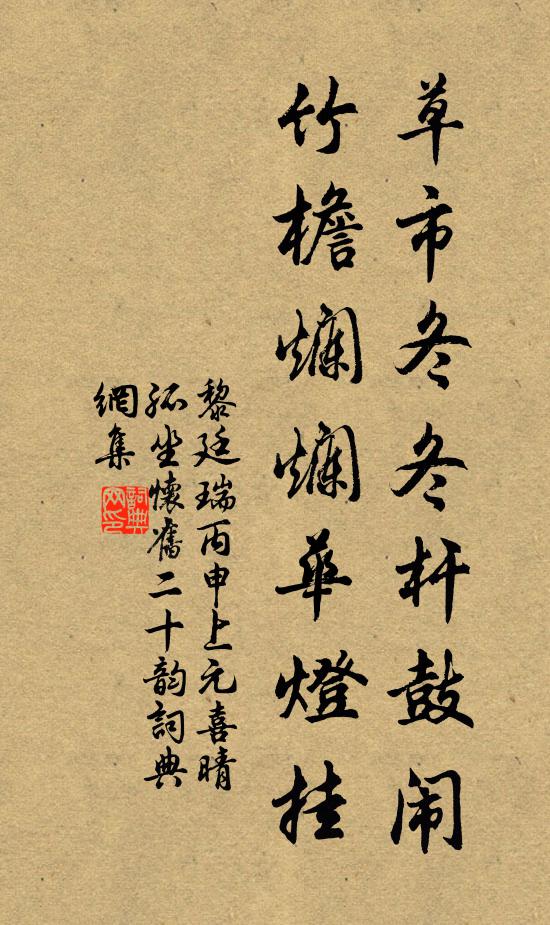 草市冬冬杆鼓闹
竹檐斓斓華燈挂
黎廷瑞丙申上元喜晴
孤坐懷舊二十韵詞典
網集
詞典
网印